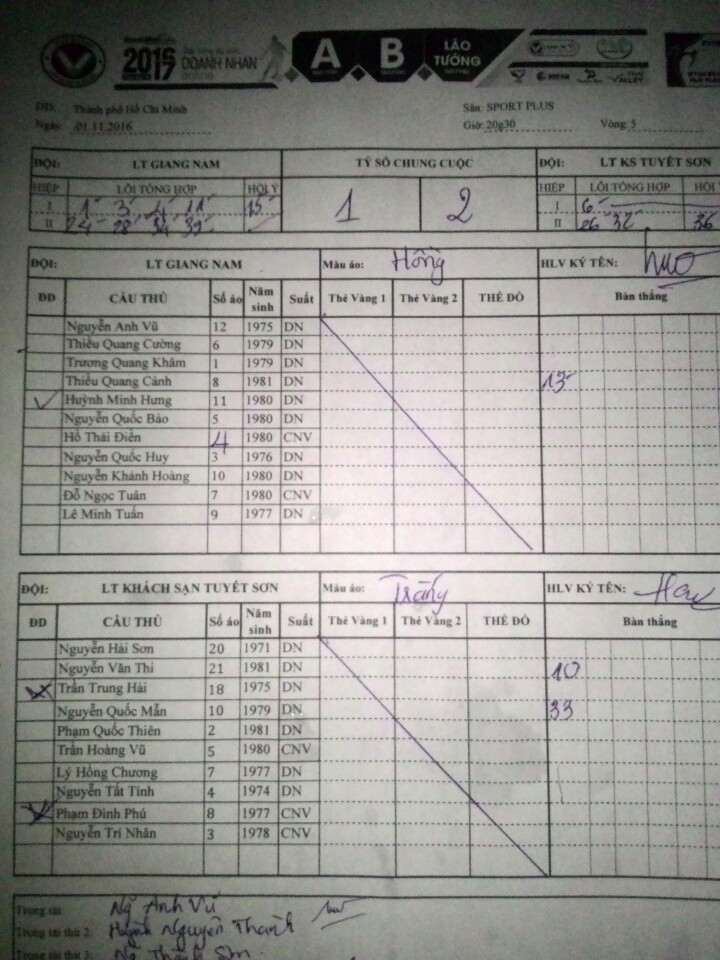 2016 DOANH NHÂN A B LÃO TƯỚNG
ĐD: Thành phố Hồ Chí Minh Sân: SPORT PLUS
Ngày: 01.11.2016 Giờ: 20g30 Vòng: 5
ĐỘI: LT GIANG NAM TỶ SỐ CHUNG CUỘC ĐỘI: LT KS TUYẾT SƠN
HIỆP LỖI TỔNG HỢP HỘI Ý 1 2 HIỆP LỖI TỔNG HỢP HỘI
I 1' 3' 4' 11' 15' I 6'
II 24' 28' 34' 39' II 26' 32' 36
ĐỘI: LT GIANG NAM Màu áo: Hồng HLV KÝ TÊN:
ĐD CẦU THỦ Số áo Năm sinh Suất Thẻ Vàng 1 Thẻ Vàng 2 THẺ ĐỎ Bàn thắng
Nguyễn Anh Vũ 12 1975 DN
Thiều Quang Cường 6 1979 DN
Trương Quang Khâm 1 1979 DN
Thiều Quang Cảnh 8 1981 DN 13'
Huỳnh Minh Hưng 11 1980 DN
Nguyễn Quốc Bảo 5 1980 DN
Hồ Thái Điền 4 1980 CNV
Nguyễn Quốc Huy 3 1976 DN
Nguyễn Khánh Hoàng 10 1980 DN
Đỗ Ngọc Tuân 7 1980 CNV
Lê Minh Tuấn 9 1977 DN
ĐỘI: LT KHÁCH SẠN TUYẾT SƠN Màu áo: Trắng HLV KÝ TÊN:
ĐD CẦU THỦ Số áo Năm sinh Suất Thẻ Vàng 1 Thẻ Vàng 2 THẺ ĐỎ Bàn thắng
Nguyễn Hải Sơn 20 1971 DN
Nguyễn Văn Thi 21 1981 DN 10
Trần Trung Hải 18 1975 DN
Nguyễn Quốc Mẫn 10 1979 DN 33
Phạm Quốc Thiên 2 1981 DN
Trần Hoàng Vũ 5 1980 CNV
Lý Hồng Chương 7 1977 DN
Nguyễn Tất Tính 4 1974 DN
Phạm Đình Phú 8 1977 CNV
Nguyễn Trí Nhân 3 1978 CNV
Trọng tài: Ng Anh Vũ
Trọng tài thứ 2: Huỳnh Nguyên Thanh
Trọng tài thứ 3: